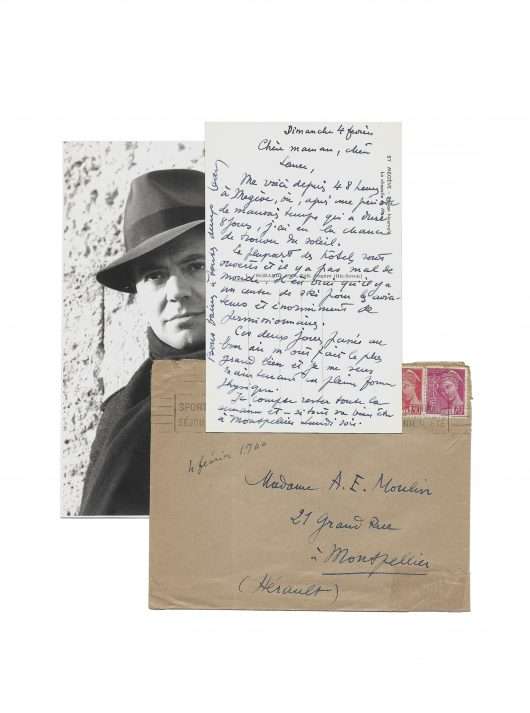 Dimanche 4 février
Chère maman, chère
Laure,
Me voici depuis 48 heures
à Megève, où, après une période
de mauvais temps qui a duré
8 jours, j'ai eu la chance
de trouver du soleil.
La plupart des hôtels sont
ouverts et il y a pas mal de
monde. Il est vrai qu'il y a
un centre de ski pour les avia-
teurs et énormément de
permissionnaires.
Ces deux jours passés au
bon air m'ont fait le plus
grand bien et je me sens
maintenant en pleine forme
physique.
Je compte rester toute la
semaine et si tout va bien être
à Montpellier Lundi soir.
Bons baisers à toutes deux
ST
SPORT
SÉJOU
ÉTÉ
4 février 1940
Madame A. E. Moulin
21 Grand Rue
à Montpellier
(Hérault)